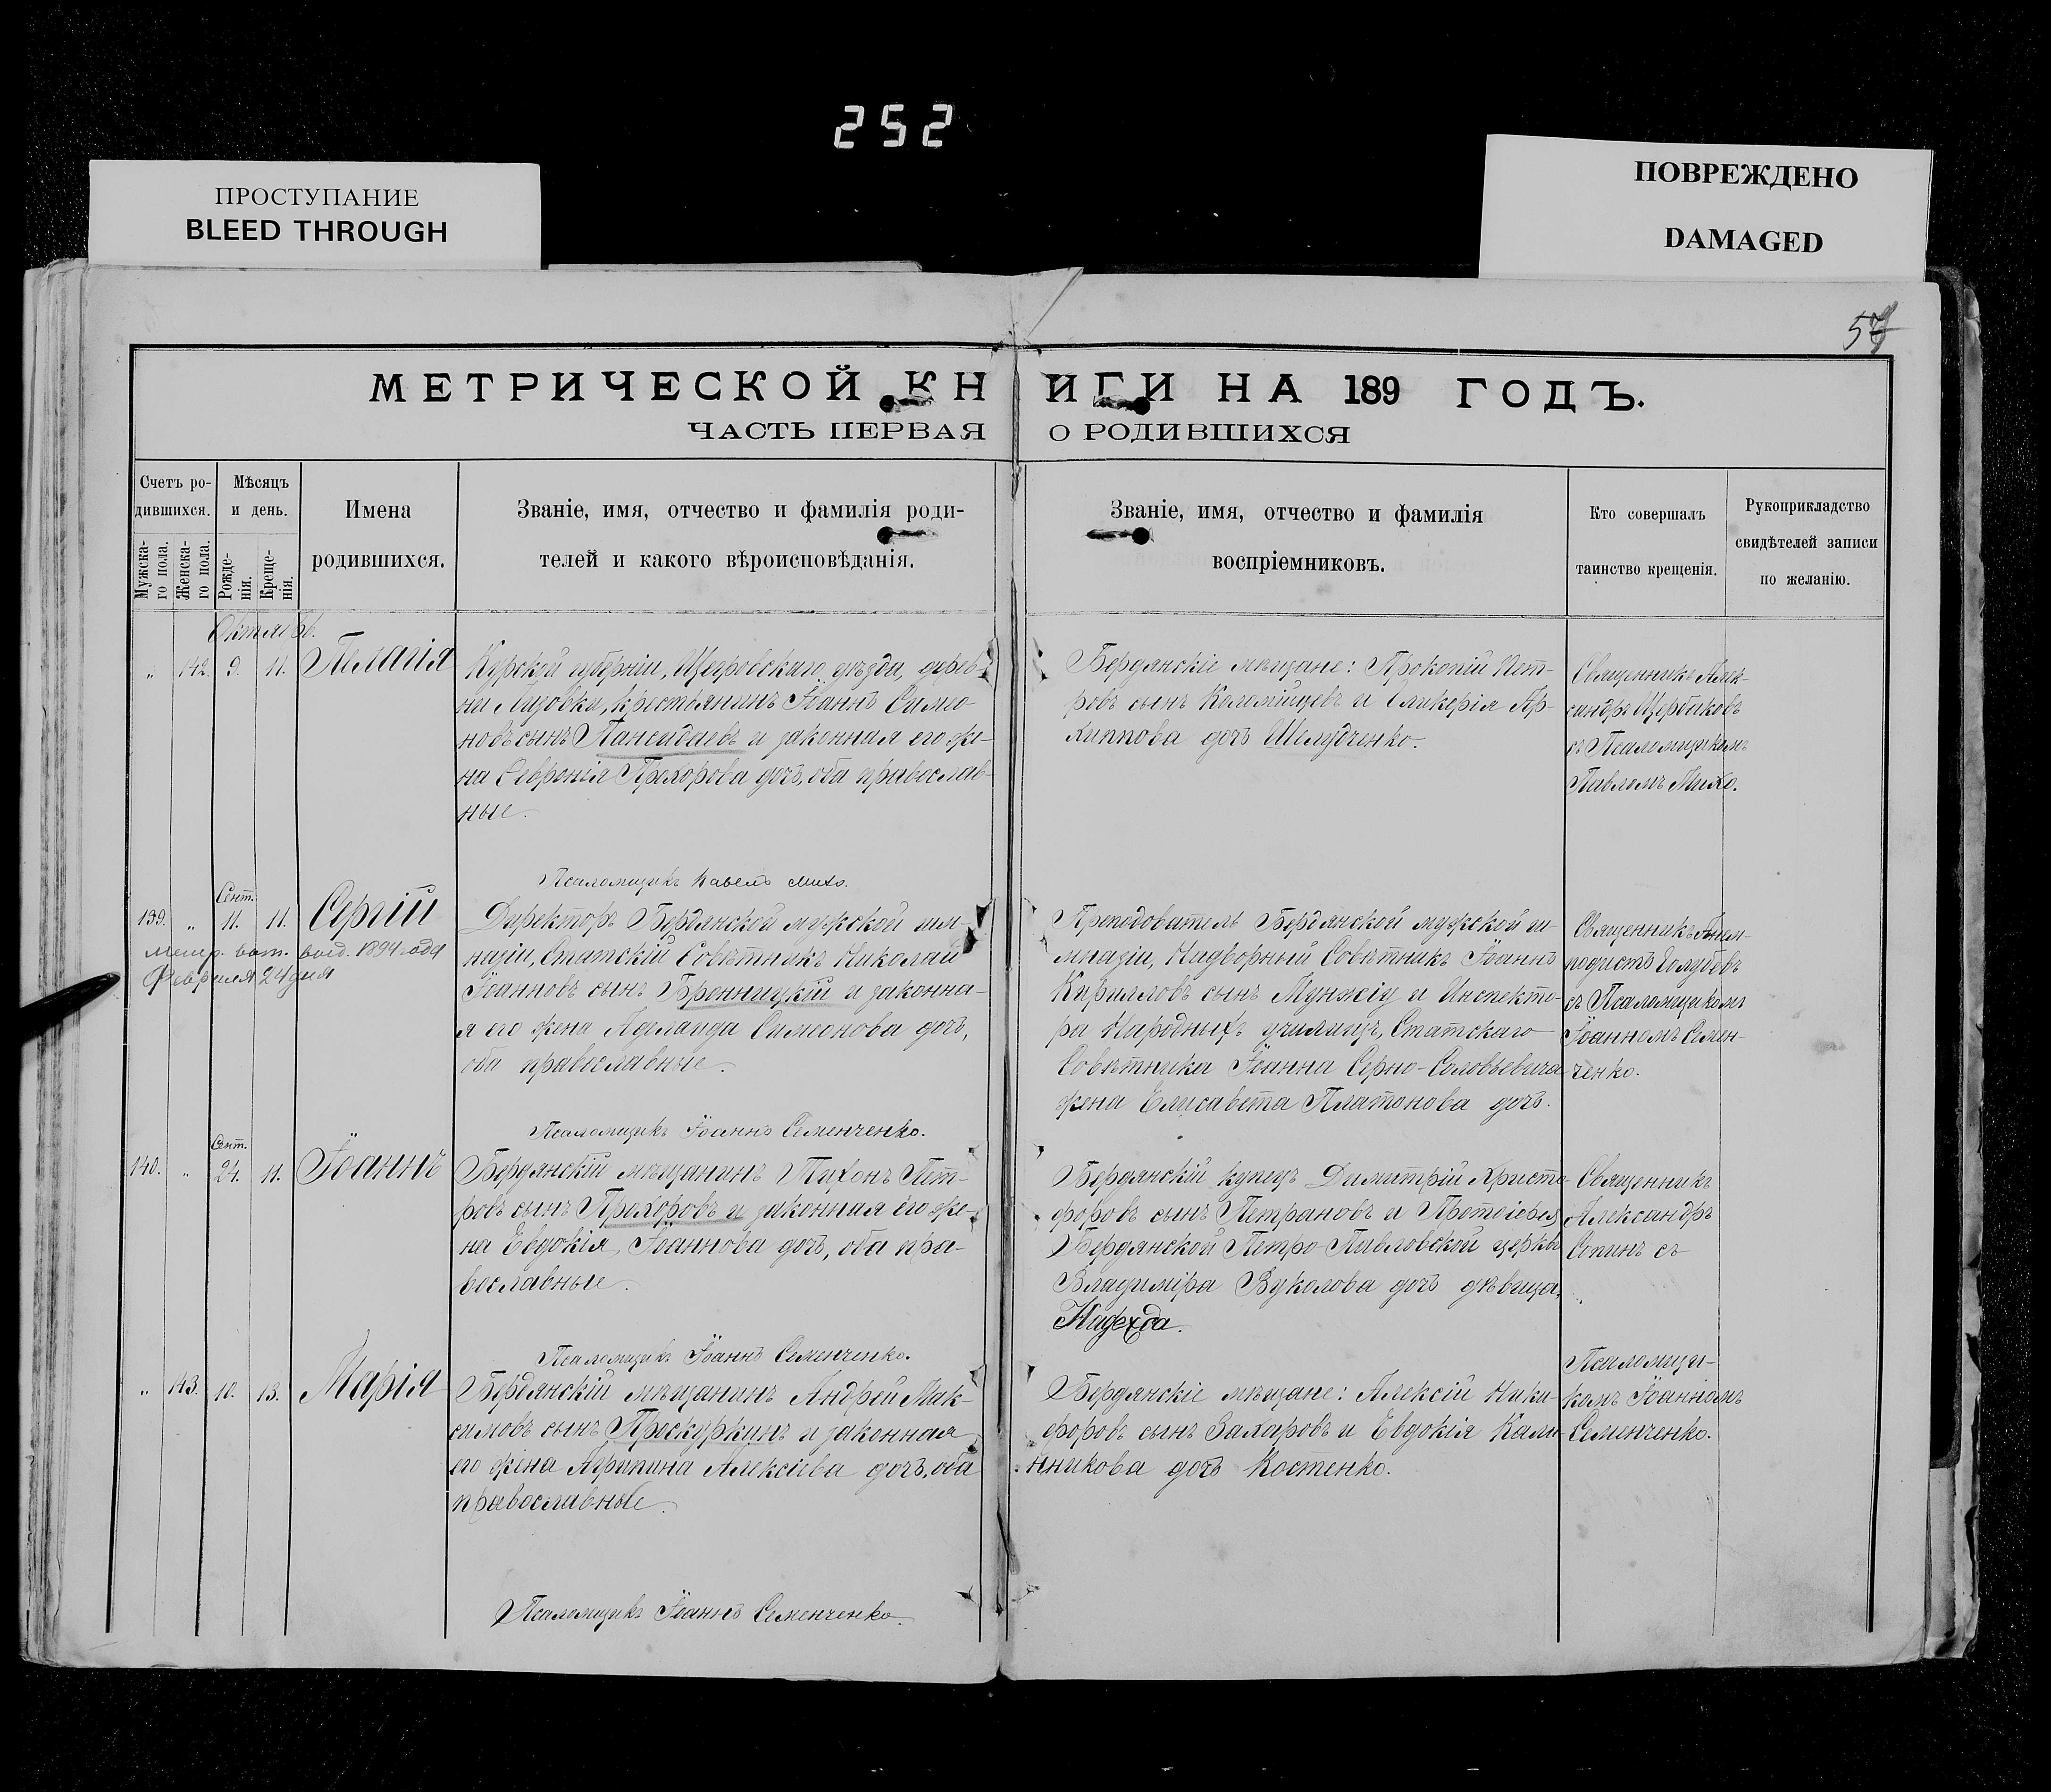 252
ПРОСТУПАНИЕ
BLEED THROUGH
ПОВРЕЖДЕНО
DAMAGED
МЕТРИЧЕСКОЙ КНИГИ НА 189 ГОДЪ.
ЧАСТЬ ПЕРВАЯ О РОДИВШИХСЯ
Счетъ ро-
дившихся.
Мужска-
го пола.
Женска-
го пола.
Мѣсяцъ
и день.
Рожде-
нія.
Креще-
нія.
Имена
родившихся.
Званіе, имя, отчество и фамилія роди-
телей и какого вѣроисповѣданія.
Званіе, имя, отчество и фамилія
воспріемниковъ.
Кто совершалъ
таинство крещенія.
Рукоприкладство
свидѣтелей записи
по желанію.
Октябрь.
„ 142. 9. 11. Пелагія
Курской губерніи, Щегровскаго уѣзда, дерев-
ни Лизовки, крестьянинъ Іоаннъ Симео-
новъ сынъ и законная его же-
на Февронія Прохорова дочь, оба православ-
ные.
Бердянскіе мѣщане: Прокопій Пет-
ровъ сынъ Коломійцевъ и Гликерія Ар-
хиппова дочь Шелудченко.
Священникъ Алек-
сандръ Щербаковъ
съ Псаломщикомъ
Павломъ Михо.
Псаломщикъ Павелъ Михо.
Сент.
139. „ 11. 11. Сергій
метр. вып. выд. 1894 года
Февраля 24 дня
Директоръ Бердянской мужской гим-
назіи, Статскій Совѣтникъ Николай
Іоанновъ сынъ Бронницкій и законна-
я его жена Аделаида Симеонова дочь,
оба православные.
Преподователь Бердянской мужской ги-
мназіи, Надворный Совѣтникъ Іоаннъ
Кирилловъ сынъ Мунжіу и Инспекто-
ра Народныхъ училищъ, Статскаго
Совѣтника Іоанна Серно-Соловьевича
жена Елисавета Платонова дочь.
Священникъ Анем-
подистъ Голубевъ
съ Псаломщикомъ
Іоанномъ Семен-
ченко.
Псаломщикъ Іоаннъ Семенченко.
Сент.
140. „ 24. 11. Іоаннъ
Бердянскій мѣщанинъ Тихонъ Пет-
ровъ сынъ Прохоровъ и законная его же-
на Евдокія Іоаннова дочь, оба пра-
вославные.
Бердянскій купецъ Димитрій Христо-
форовъ сынъ Петрановъ и Протоіерея
Бердянской Петро-Павловской церкви
Владиміра Вуколова дочь дѣвица,
Надежда.
Священникъ
Александръ
Сѣпинъ съ
Псаломщикъ Іоаннъ Семенченко.
„ 143. 10. 13. Марія
Бердянскій мѣщанинъ Андрей Мак-
симовъ сынъ Проскуркинъ и законная
его жена Агрипина Алексіева дочь, оба
православные.
Бердянскіе мѣщане: Алексій Ники-
форовъ сынъ Захаровъ и Евдокія Кали-
нникова дочь Костенко.
Псаломщи-
комъ Іоанномъ
Семенченко.
Псаломщикъ Іоаннъ Семенченко.